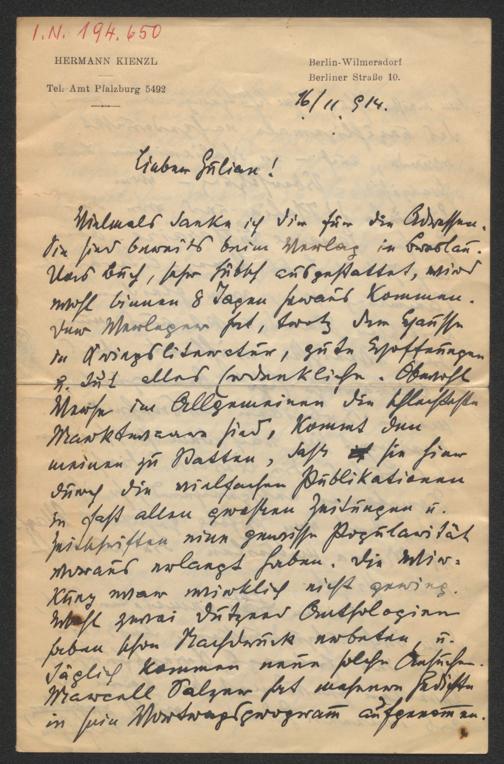 I.N. 194.650
HERMANN KIENZL
Berlin-Wilmersdorf
Berliner Straße 10.
Tel. Amt Pfalzburg 5492
16/11 914.
Lieber Julian!
Vielmals danke ich Dir für die Adressen.
Sie sind bereits beim Verlag in Breslau.
Das Buch, sehr hübsch ausgestattet, wird
wohl binnen 8 Tagen heraus kommen.
Der Verleger hat, trotz der Hausse
in Kriegsliteratur, gute Hoffnungen
u. tut alles Erdenkliche. Obwohl
Verse im Allgemeinen die schlechteste
Marktware sind, kommt den
meinen zu Statten, daß sie hier
durch die vielfachen Publikationen
in fast allen großen Zeitungen u.
Zeitschriften eine gewisse Popularität
voraus erlangt haben. Die Wir-
kung war wirklich nicht gering.
Wohl zwei Dutzend Anthologien
haben schon Nachdruck erbeten, u.
täglich kommen neue solche Ansuchen.
Marcell Salzer hat mehrere Gedichte
in sein Vortragsprogram aufgenomen.